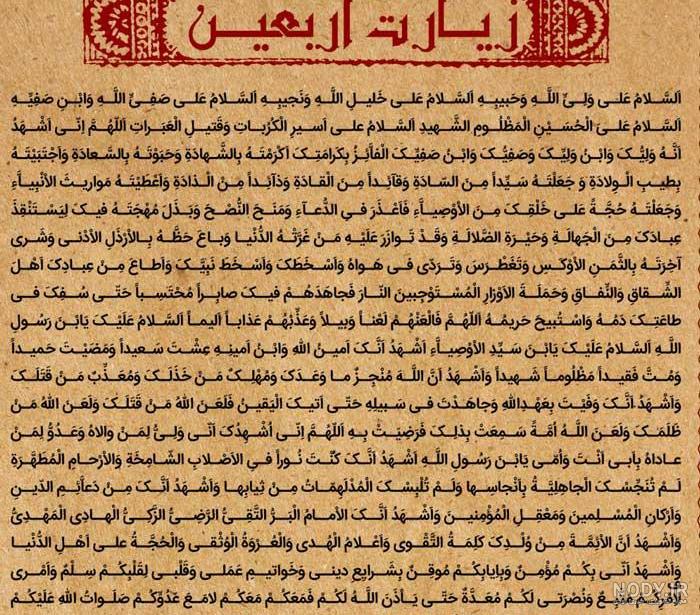 زیارت اربعین
اَلسَّلامُ عَلی وَلِیِّ اللَّهِ وَحَبیبِهِ اَلسَّلامُ عَلی خَلیلِ اللَّهِ وَنَجیبِهِ اَلسَّلامُ عَلی صَفِیِّ اللَّهِ وَابْنِ صَفِیِّهِ
اَلسَّلامُ عَلیَ الْحُسَیْنِ الْمَظْلُومِ الشَّهیدِ اَلسَّلامُ علی اَسیرِ الْکُرُباتِ وَقَتیلِ الْعَبَراتِ اَللّهُمَّ اِنّی اَشْهَدُ
اَنَّهُ وَلِیُّکَ وَابْنُ وَلِیِّکَ وَصَفِیُّکَ وَابْنُ صَفِیِّکَ الْفاَّئِزُ بِکَرامَتِکَ اَکْرَمْتَهُ بِالشَّهادَةِ وَحَبَوْتَهُ بِالسَّعادَةِ وَاَجْتَبَیْتَهُ
بِطیبِ الْوِلادَةِ وَ جَعَلْتَهُ سَیِّداً مِنَ السّادَةِ وَقآئِداً مِنَ الْقادَةِ وَذآئِداً مِنَ الْذادَةِ وَاَعْطَیْتَهُ مَواریثَ الاَنْبِیاَّءِ
وَجَعَلْتَهُ حُجَّةً عَلی خَلْقِکَ مِنَ الاَوْصِیاَّءِ فَاَعْذَرَ فیِ الدُّعآءِ وَمَنَحَ النُّصْحَ وَبَذَلَ مُهْجَتَهُ فیکَ لِیَسْتَنْقِذَ
عِبادَکَ مِنَ الْجَهالَةِ وَحَیْرَةِ الضَّلالَةِ وَقَدْ تَوازَرَ عَلَیْهِ مَنْ غَرَّتْهُ الدُّنْیا وَباعَ حَظَّهُ بِالاَرْذَلِ الاَدْنی وَشَری
آخِرَتَهُ بِالثَّمَنِ الاَوْکَسِ وَتَغَطْرَسَ وَتَرَدّی فی هَواهُ وَاَسْخَطَکَ وَاَسْخَطَ نَبِیَّکَ وَاَطاعَ مِنْ عِبادِکَ اَهْلَ
الشِّقاقِ وَالنِّفاقِ وَحَمَلَةَ الاَوْزارِ الْمُسْتَوْجِبینَ النّارَ فَجاهَدَهُمْ فیکَ صابِراً مُحْتَسِباً حَتّی سُفِکَ فی
طاعَتِکَ دَمُهُ وَاسْتُبیحَ حَریمُهُ اَللّهُمَّ فَالْعَنْهُمْ لَعْناً وَبیلاً وَعَذِّبْهُمْ عَذاباً اَلیماً اَلسَّلامُ عَلَیْکَ یَابْنَ رَسُولِ
اللَّهِ اَلسَّلامُ عَلَیْکَ یَابْنَ سَیِّدِ الاَوْصِیاَّءِ اَشْهَدُ اَنَّکَ اَمینُ اللهِ وَابْنُ اَمینِهِ عِشْتَ سَعیداً وَمَضَیْتَ حَمیداً
وَمُتَّ فَقیداً مَظْلُوماً شَهیداً وَاَشْهَدُ اَنَّ اللَّهَ مُنْجِزٌ ما وَعَدَکَ وَمُهْلِکٌ مَنْ خَذَلَکَ وَمُعَذِّبٌ مَنْ قَتَلَکَ
وَاَشْهَدُ اَنَّکَ وَفَیْتَ بِعَهْدِاللهِ وَجاهَدْتَ فی سَبیلِهِ حَتّی اَتیکَ الْیَقینُ فَلَعَنَ اللهُ مَنْ قَتَلَکَ وَلَعَنَ اللهُ مَنْ
ظَلَمَکَ وَلَعَنَ اللَّهُ اُمَّةً سَمِعَتْ بِذلِکَ فَرَضِیَتْ بِهِ اَللّهُمَّ اِنّی اُشْهِدُکَ اَنّی وَلِیٌّ لِمَنْ والاهُ وَعَدُوٌّ لِمَنْ
عاداهُ بِاَبی اَنْتَ وَاُمّی یَابْنَ رَسُولِ اللَّهِ اَشْهَدُ اَنَّکَ کُنْتَ نُوراً فیِ الاَصْلابِ الشّامِخَةِ وَالاَرْحامِ الْمُطَهَّرَةِ
لَمْ تُنَجِّسْکَ الْجاهِلِیَّةُ بِاَنْجاسِها وَلَمْ تُلْبِسْکَ الْمُدْلَهِمّاتُ مِنْ ثِیابِها وَاَشْهَدُ اَنَّکَ مِنْ دَعاَّئِمِ الدّینِ
وَاَرْکانِ الْمُسْلِمینَ وَمَعْقِلِ الْمُؤْمِنینَ وَاَشْهَدُ اَنَّکَ الاِمامُ الْبَرُّ التَّقِیُّ الرَّضِیُّ الزَّکِیُّ الْهادِی الْمَهْدِیُّ
وَاَشْهَدُ اَنَّ الاَئِمَّةَ مِنْ وُلْدِکَ کَلِمَةُ التَّقْوی وَاَعْلامُ الْهُدی وَالْعُرْوَةُ الْوُثْقی وَالْحُجَّةُ علی اَهْلِ الدُّنْیا
وَاَشْهَدُ اَنّی بِکُمْ مُؤْمِنٌ وَبِاِیابِکُمْ مُوقِنٌ بِشَرایِعِ دینی وَخَواتیمِ عَمَلی وَقَلْبی لِقَلْبِکُمْ سِلْمٌ وَاَمْری
لاَمْرِکُمْ مُتَّبِعٌ وَنُصْرَتی لَکُمْ مُعَدَّةٌ حَتّی یَاْذَنَ اللَّهُ لَکُمْ فَمَعَکُمْ مَعَکُمْ لامَعَ عَدُوِّکُمْ صَلَواتُ اللهِ عَلَیْکُمْ
NODY.IR